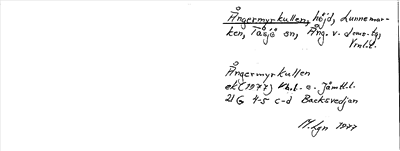 Ångermyrkullen, höjd, Lunnemar-
ken, Tåsjö sn, Ång. v. dome-tg,
Vml.l.
Ångermyrkullen
ek (1977) Vb.l. o. Jämtl.l.
21G 4-5 c-d Backsvedjan
M. Lgn 1977